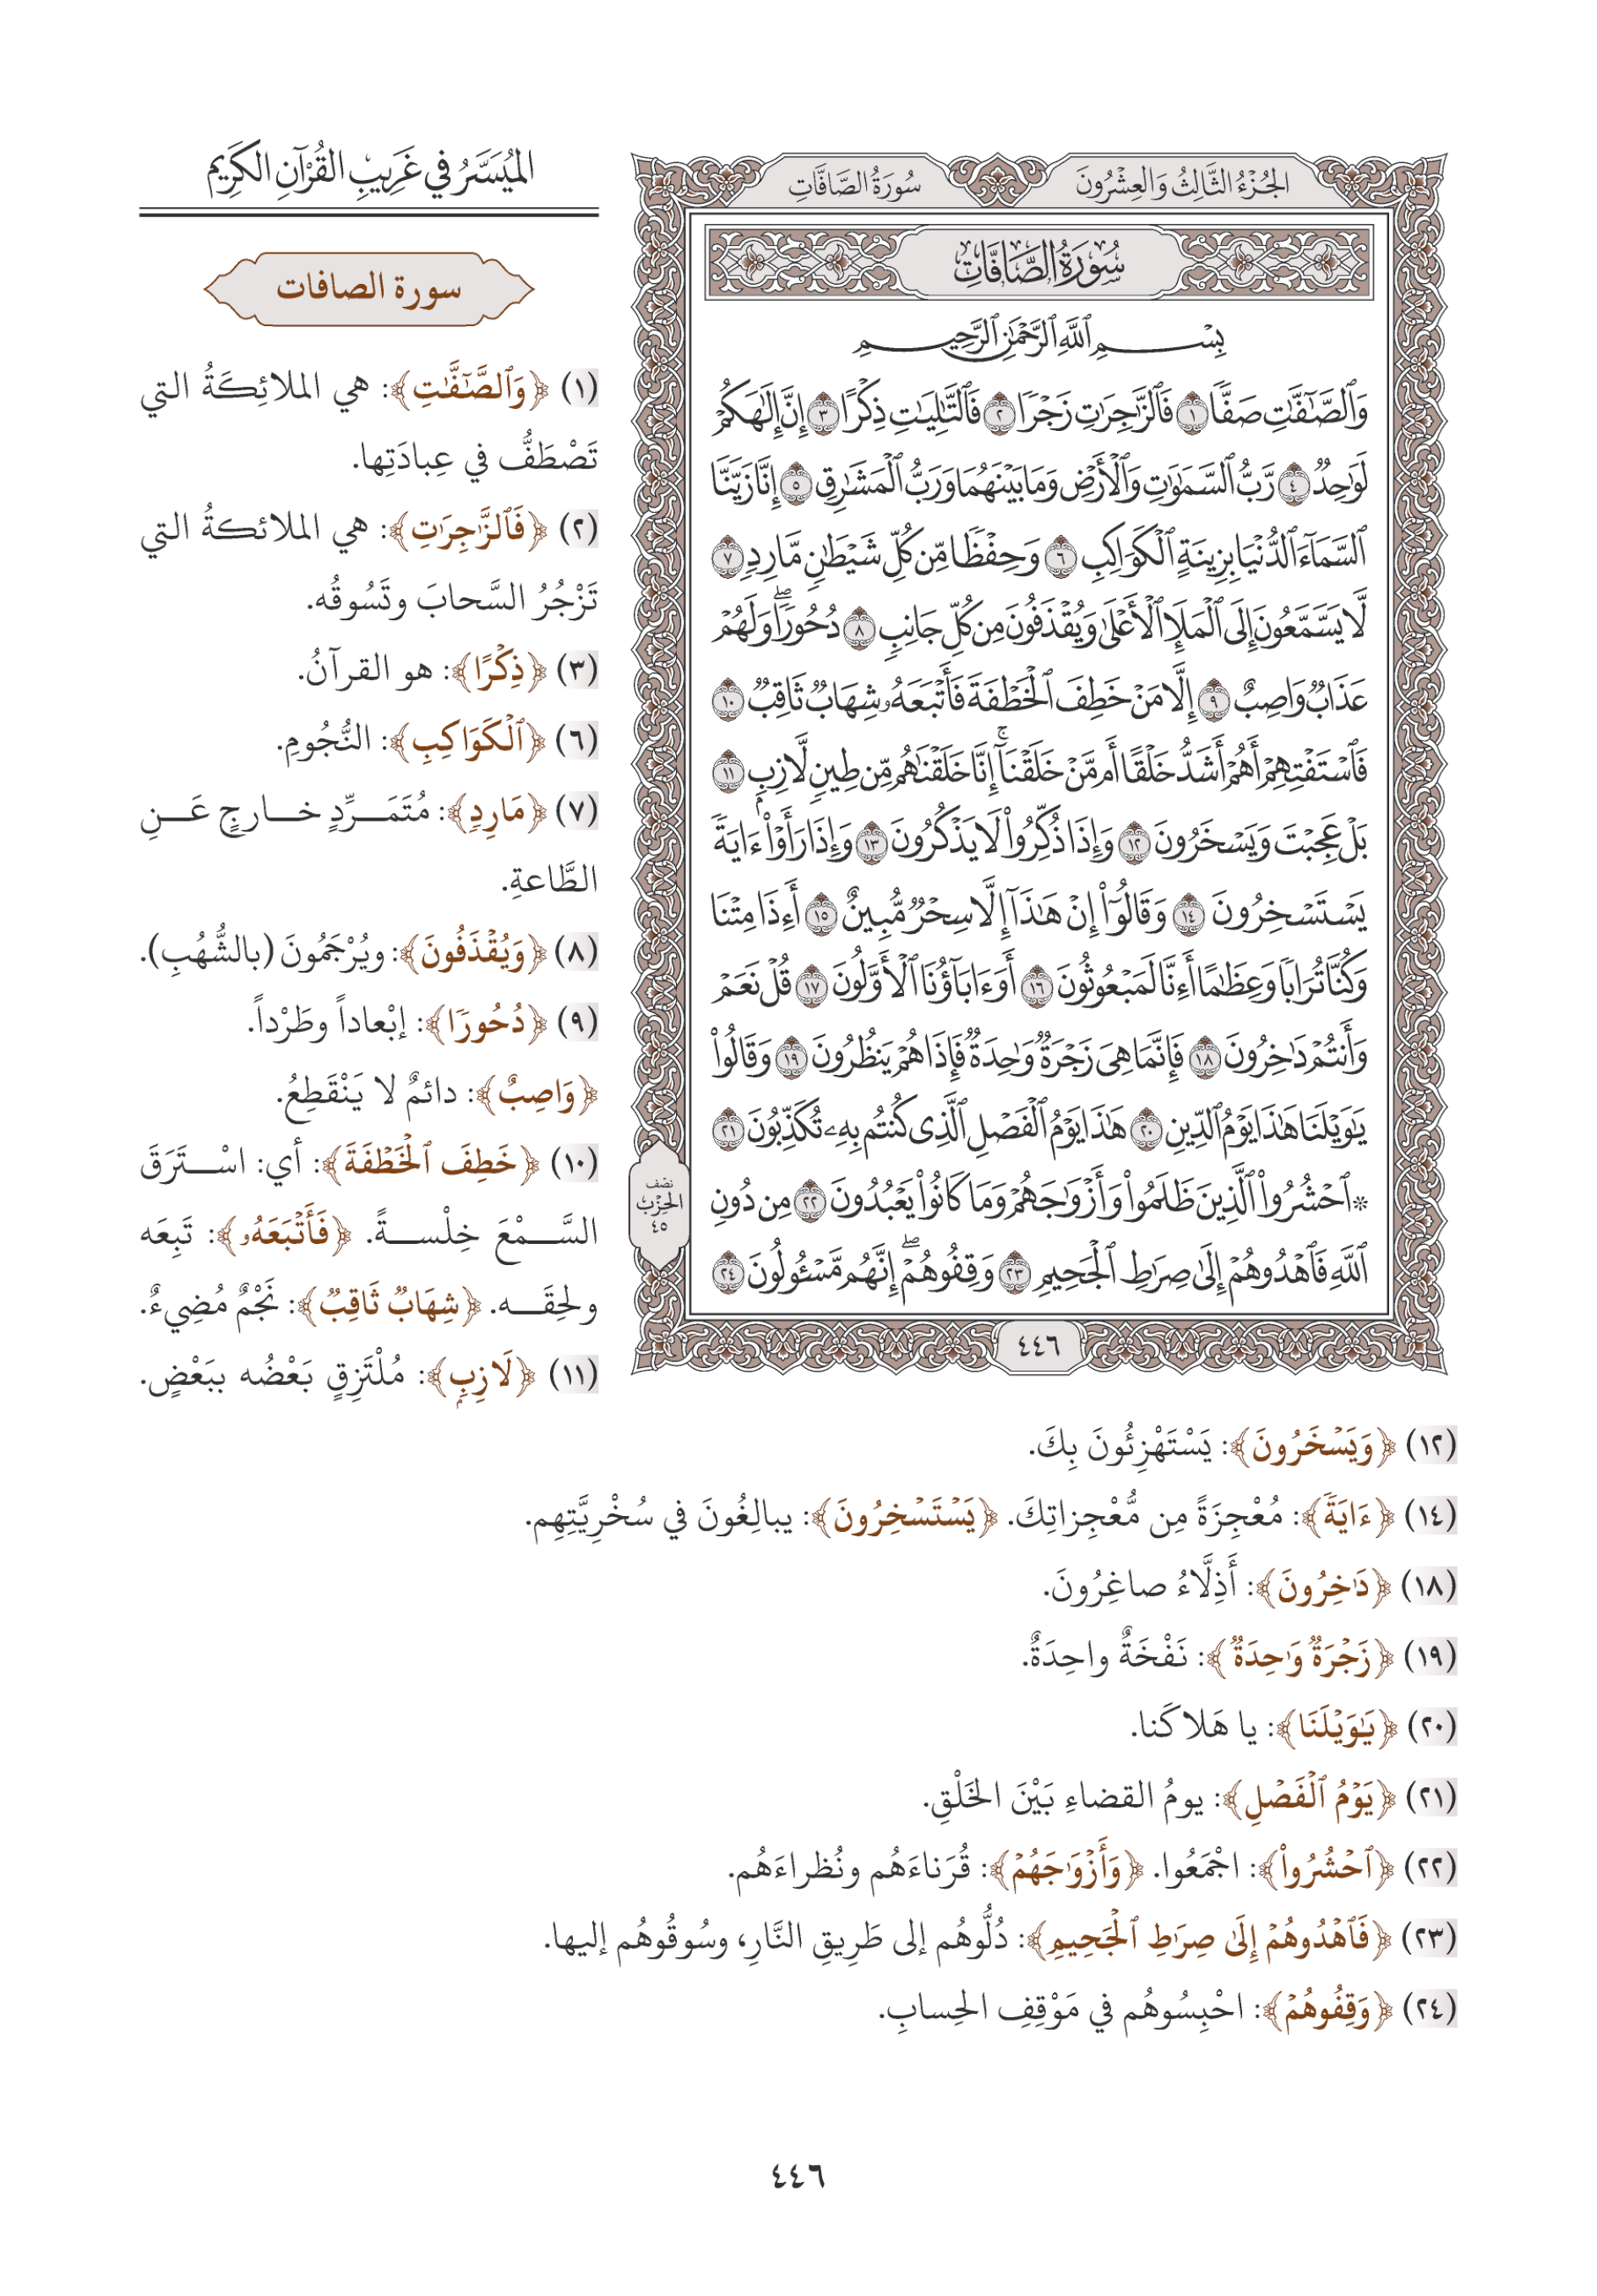 الجُزْءُ الثَّالِثُ وَالعِشْرُونَ
سُورَةُ الصَّافَّاتِ
سُورَةُ الصَّافَّاتِ
بِسْمِ ٱللَّهِ ٱلرَّحْمَٰنِ ٱلرَّحِيمِ
وَٱلصَّٰٓفَّٰتِ صَفّٗا ١ فَٱلزَّٰجِرَٰتِ زَجۡرٗا ٢ فَٱلتَّٰلِيَٰتِ ذِكۡرًا ٣ إِنَّ إِلَٰهَكُمۡ
لَوَٰحِدٞ ٤ رَّبُّ ٱلسَّمَٰوَٰتِ وَٱلۡأَرۡضِ وَمَا بَيۡنَهُمَا وَرَبُّ ٱلۡمَشَٰرِقِ ٥ إِنَّا زَيَّنَّا
ٱلسَّمَآءَ ٱلدُّنۡيَا بِزِينَةٍ ٱلۡكَوَاكِبِ ٦ وَحِفۡظٗا مِّن كُلِّ شَيۡطَٰنٖ مَّارِدٖ ٧
لَّا يَسَّمَّعُونَ إِلَى ٱلۡمَلَإِ ٱلۡأَعۡلَىٰ وَيُقۡذَفُونَ مِن كُلِّ جَانِبٖ ٨ دُحُورٗاۖ وَلَهُمۡ
عَذَابٞ وَاصِبٌ ٩ إِلَّا مَنۡ خَطِفَ ٱلۡخَطۡفَةَ فَأَتۡبَعَهُۥ شِهَابٞ ثَاقِبٞ ١٠
فَٱسۡتَفۡتِهِمۡ أَهُمۡ أَشَدُّ خَلۡقًا أَم مَّنۡ خَلَقۡنَآۚ إِنَّا خَلَقۡنَٰهُم مِّن طِينٖ لَّازِبِۭ ١١
بَلۡ عَجِبۡتَ وَيَسۡخَرُونَ ١٢ وَإِذَا ذُكِّرُواْ لَا يَذۡكُرُونَ ١٣ وَإِذَا رَأَوۡاْ ءَايَةٗ
يَسۡتَسۡخِرُونَ ١٤ وَقَالُوٓاْ إِنۡ هَٰذَآ إِلَّا سِحۡرٞ مُّبِينٌ ١٥ أَءِذَا مِتۡنَا
وَكُنَّا تُرَابٗا وَعِظَٰمًا أَءِنَّا لَمَبۡعُوثُونَ ١٦ أَوَءَابَآؤُنَا ٱلۡأَوَّلُونَ ١٧ قُلۡ نَعَمۡ
وَأَنتُمۡ دَٰخِرُونَ ١٨ فَإِنَّمَا هِيَ زَجۡرَةٞ وَٰحِدَةٞ فَإِذَا هُمۡ يَنظُرُونَ ١٩ وَقَالُواْ
يَٰوَيۡلَنَا هَٰذَا يَوۡمُ ٱلدِّينِ ٢٠ هَٰذَا يَوۡمُ ٱلۡفَصۡلِ ٱلَّذِي كُنتُم بِهِۦ تُكَذِّبُونَ ٢١
۞ ٱحۡشُرُواْ ٱلَّذِينَ ظَلَمُواْ وَأَزۡوَٰجَهُمۡ وَمَا كَانُواْ يَعۡبُدُونَ ٢٢ مِن دُونِ
ٱللَّهِ فَٱهۡدُوهُمۡ إِلَىٰ صِرَٰطِ ٱلۡجَحِيمِ ٢٣ وَقِفُوهُمۡۖ إِنَّهُم مَّسۡـُٔولُونَ ٢٤
نصف
الحزب
٤٥
٤٤٦
المُيَسَّرُ في غَرِيبِ القُرْآنِ الكَرِيم
سورة الصافات
(١) ﴿وَٱلصَّٰٓفَّٰتِ﴾: هي الملائِكَةُ التي
تَصْطَفُّ في عِبادَتِها.
(٢) ﴿فَٱلزَّٰجِرَٰتِ﴾: هي الملائكةُ التي
تَزْجُرُ السَّحابَ وتَسُوقُه.
(٣) ﴿ذِكۡرًا﴾: هو القرآنُ.
(٦) ﴿ٱلۡكَوَاكِبِ﴾: النُّجُومِ.
(٧) ﴿مَارِدٖ﴾: مُتَمَرِّدٍ خارجٍ عَنِ
الطَّاعةِ.
(٨) ﴿وَيُقۡذَفُونَ﴾: ويُرْجَمُونَ (بالشُّهُبِ).
(٩) ﴿دُحُورٗا﴾: إبْعاداً وطَرْداً.
﴿وَاصِبٌ﴾: دائمٌ لا يَنْقَطِعُ.
(١٠) ﴿خَطِفَ ٱلۡخَطۡفَةَ﴾: أي: اسْتَرَقَ
السَّمْعَ خِلْسةً. ﴿فَأَتۡبَعَهُۥ﴾: تَبِعَه
ولحِقَه. ﴿شِهَابٞ ثَاقِبٞ﴾: نَجْمٌ مُضِيءٌ.
(١١) ﴿لَازِبِۭ﴾: مُلْتَزِقٍ بَعْضُه ببَعْضٍ.
(١٢) ﴿وَيَسۡخَرُونَ﴾: يَسْتَهْزِئُونَ بِكَ.
(١٤) ﴿ءَايَةٗ﴾: مُعْجِزَةً مِن مُّعْجِزاتِكَ. ﴿يَسۡتَسۡخِرُونَ﴾: يبالِغُونَ في سُخْرِيَّتِهِم.
(١٨) ﴿دَٰخِرُونَ﴾: أَذِلَّاءُ صاغِرُونَ.
(١٩) ﴿زَجۡرَةٞ وَٰحِدَةٞ﴾: نَفْخَةٌ واحِدَةٌ.
(٢٠) ﴿يَٰوَيۡلَنَا﴾: يا هَلاكَنا.
(٢١) ﴿يَوۡمُ ٱلۡفَصۡلِ﴾: يومُ القضاءِ بَيْنَ الخَلْقِ.
(٢٢) ﴿ٱحۡشُرُواْ﴾: اجْمَعُوا. ﴿وَأَزۡوَٰجَهُمۡ﴾: قُرَناءَهُم ونُظراءَهُم.
(٢٣) ﴿فَٱهۡدُوهُمۡ إِلَىٰ صِرَٰطِ ٱلۡجَحِيمِ﴾: دُلُّوهُم إلى طَرِيقِ النَّارِ، وسُوقُوهُم إليها.
(٢٤) ﴿وَقِفُوهُمۡ﴾: احْبِسُوهُم في مَوْقِفِ الحِسابِ.
٤٤٦